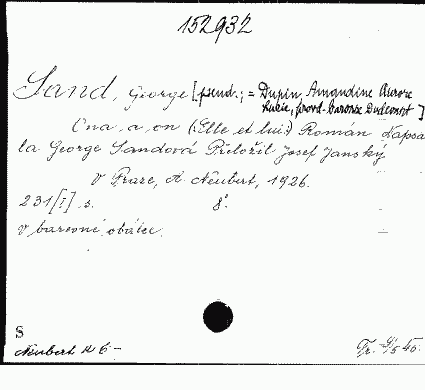 152932
Sand, George [pseud.; = Dupin, Amandine Aurore
Lucie, provd. baronne Dudevant]
Ona a on (:Elle et lui:) Román. Napsa-
la George Sandová Přeložil Josef Janský
V Praze, A. Neubert, 1926.
231 [I] s. 8°.
v barevné obálce.
S
Neubert K 6 –